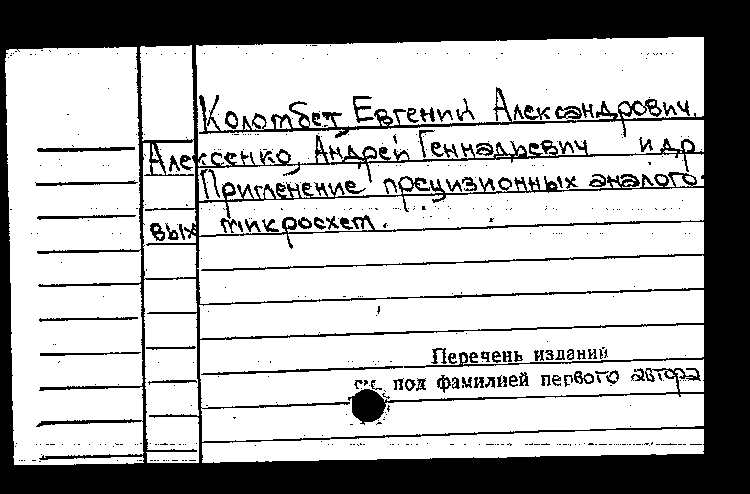 Коломбет, Евгений Александрович.
Алексенко, Андрей Геннадьевич и др.
Применение прецизионных аналого-
вых микросхем.
Перечень изданий
см. под фамилией первого автора